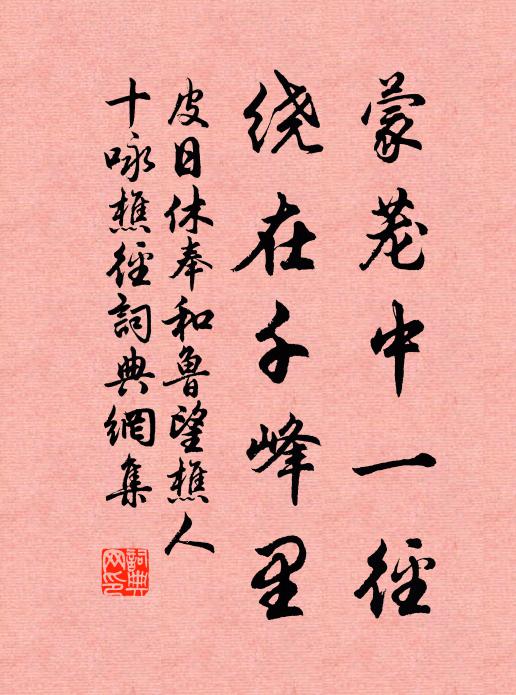 蒙茏中一径
绕在千峰里
皮日休奉和鲁望樵人
十咏樵径词典网集
词典网印